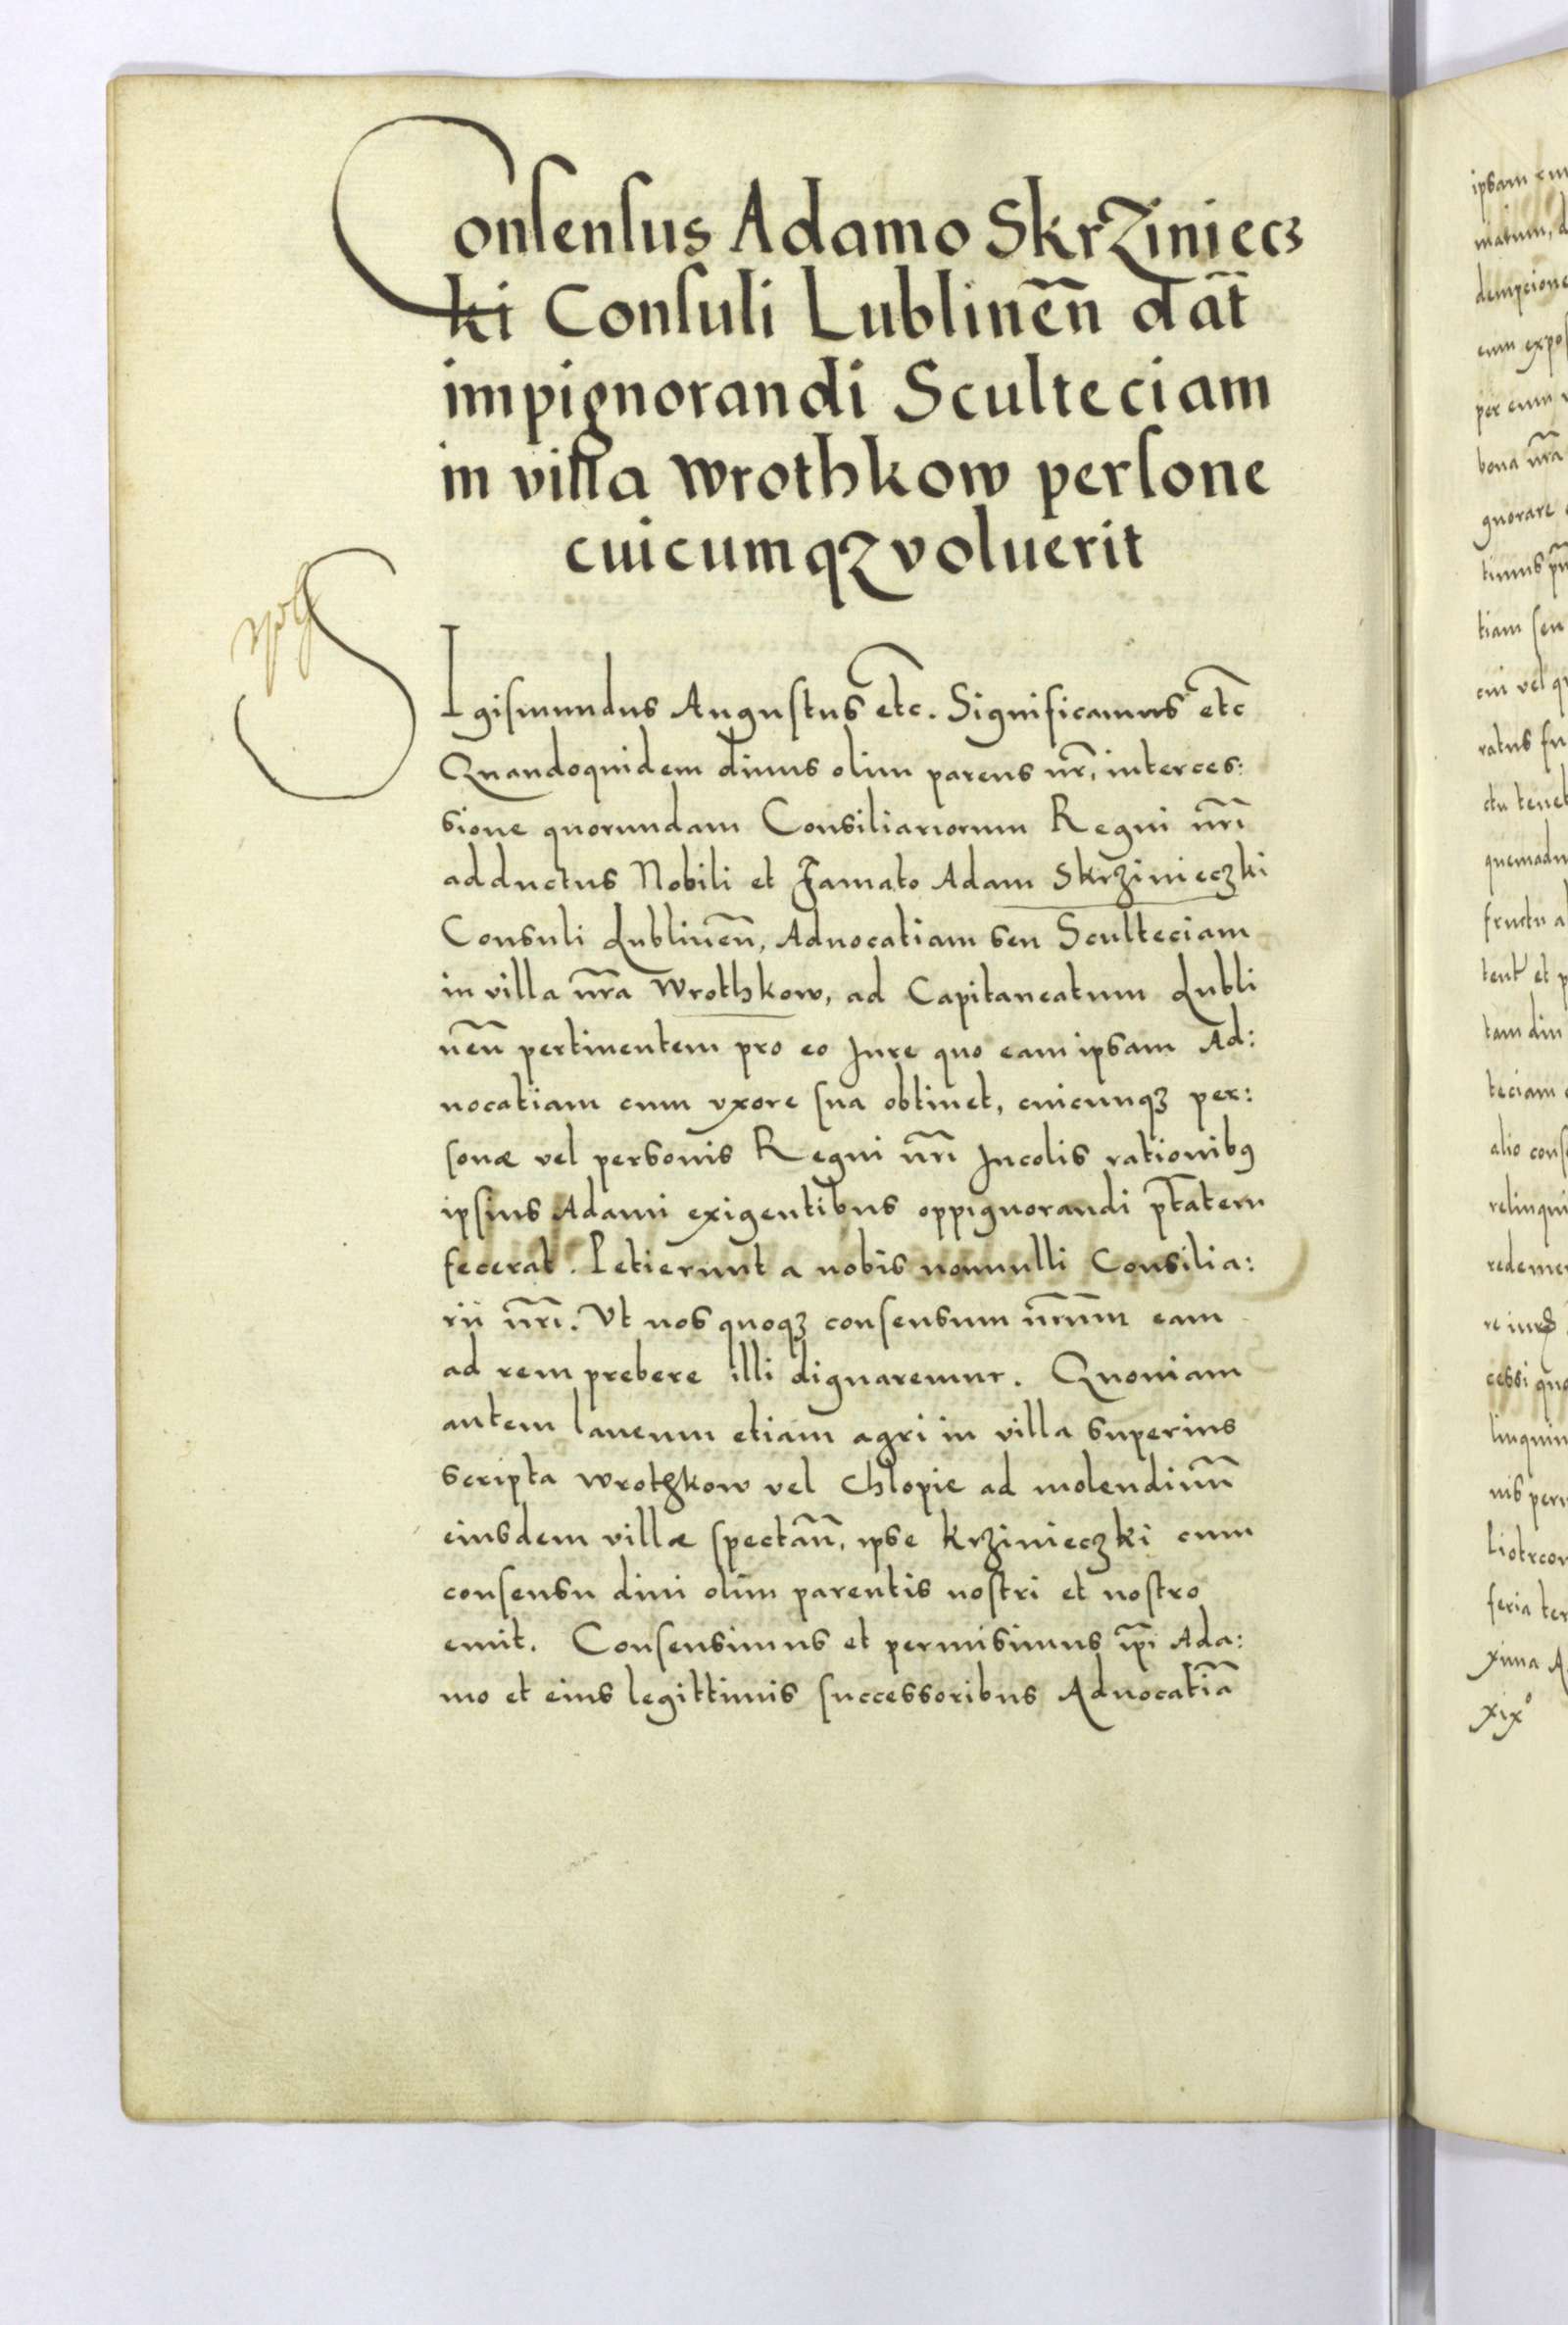 Consensus Adamo Skrziniecz
ki Consuli Lublinen̄ dat̄
impignorandi Sculteciam
in villa wrothkow persone
cuicumqꝫ voluerit
SIgismundus Augustus etc. Significamus etc
Quandoquidem diuus olim parens nr̄, interces:
sione quorundam Consiliariorum Regni nr̄i
adductus Nobili et Famato Adam Skrzinieczki
Consuli Lublinen̄, Aduocatiam seu Sculteciam
in villa nr̄a Wrothkow, ad Capitaneatum Lubli
nen̄ pertinentem pro eo Jure quo eam ipsam Ad:
uocatiam cum vxore sua obtinet, cuicunqꝫ per:
sonæ vel personis Regni nr̄i Incolis rationibꝰ
ipsius Adami exigentibus oppignorandi ptatem̄
fecerat. Petierunt a nobis nonnulli Consilia:
rii nr̄i. Vt nos quoqꝫ consensum nr̄um eam
ad rem prebere illi dignaremur. Quoniam
autem laneum etiam agri in villa superius
scripta wrothkow vel Chlopie ad molendinū
eiusdem villæ spectan̄, ipse Krzinieczki cum
consensu diui olim parentis nostri et nostro
emit. Consensimus et permisimus ip̄i Ada:
mo et eius legittimis successoribus Aduocatiā
ipsam
dempcione
eum expos
per eum
bona nr̄a
gnorare
timus
tiam seu
cui vel
ratus
quemadm
fructu
tam diu
teciam
alio cons
relinqui
cessi
linquim
feria
xima
xixº